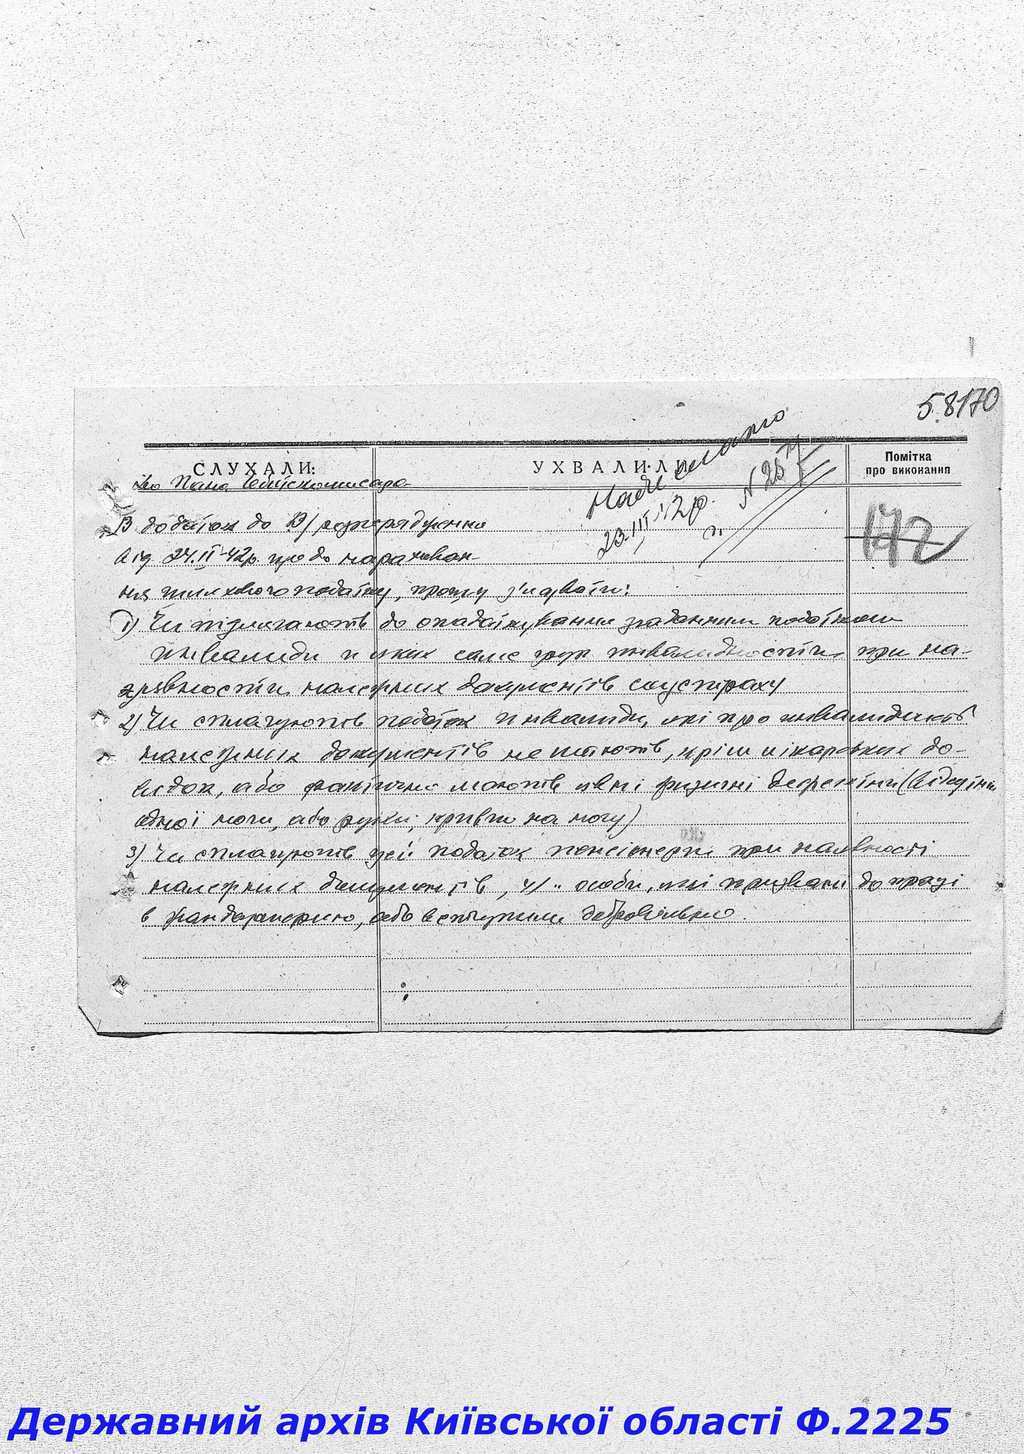 58170
СЛУХАЛИ:
УХВАЛИЛИ:
Помітка
про виконання
До Пана Гебітскомисара
Надіслано
23.III.42р.
N 25
172
В додаток до В/розпорядження
від 24.II-42р. що до нарахован-
ня шляхового податку, прошу з'ясувати:
1) Чи підлягають до опадаткування згаданним податком
інвалиди и яких саме груп инвалидности, при на-
явности належних документів соцстраху
2) Чи сплачують податок инвалиди, які про инвалидність
належних документів не мають, крім лікарських до-
відок, або фактично мають певні физичні дефекти (
одної ноги, або руки, криви на ногу)
3) Чи сплачують усі податок пенсіонери при наявності
належних документів, 4/ особи, які призвані до праці
в жандармерию, або вступили добровільно.
Державний архів Київської області Ф.2225